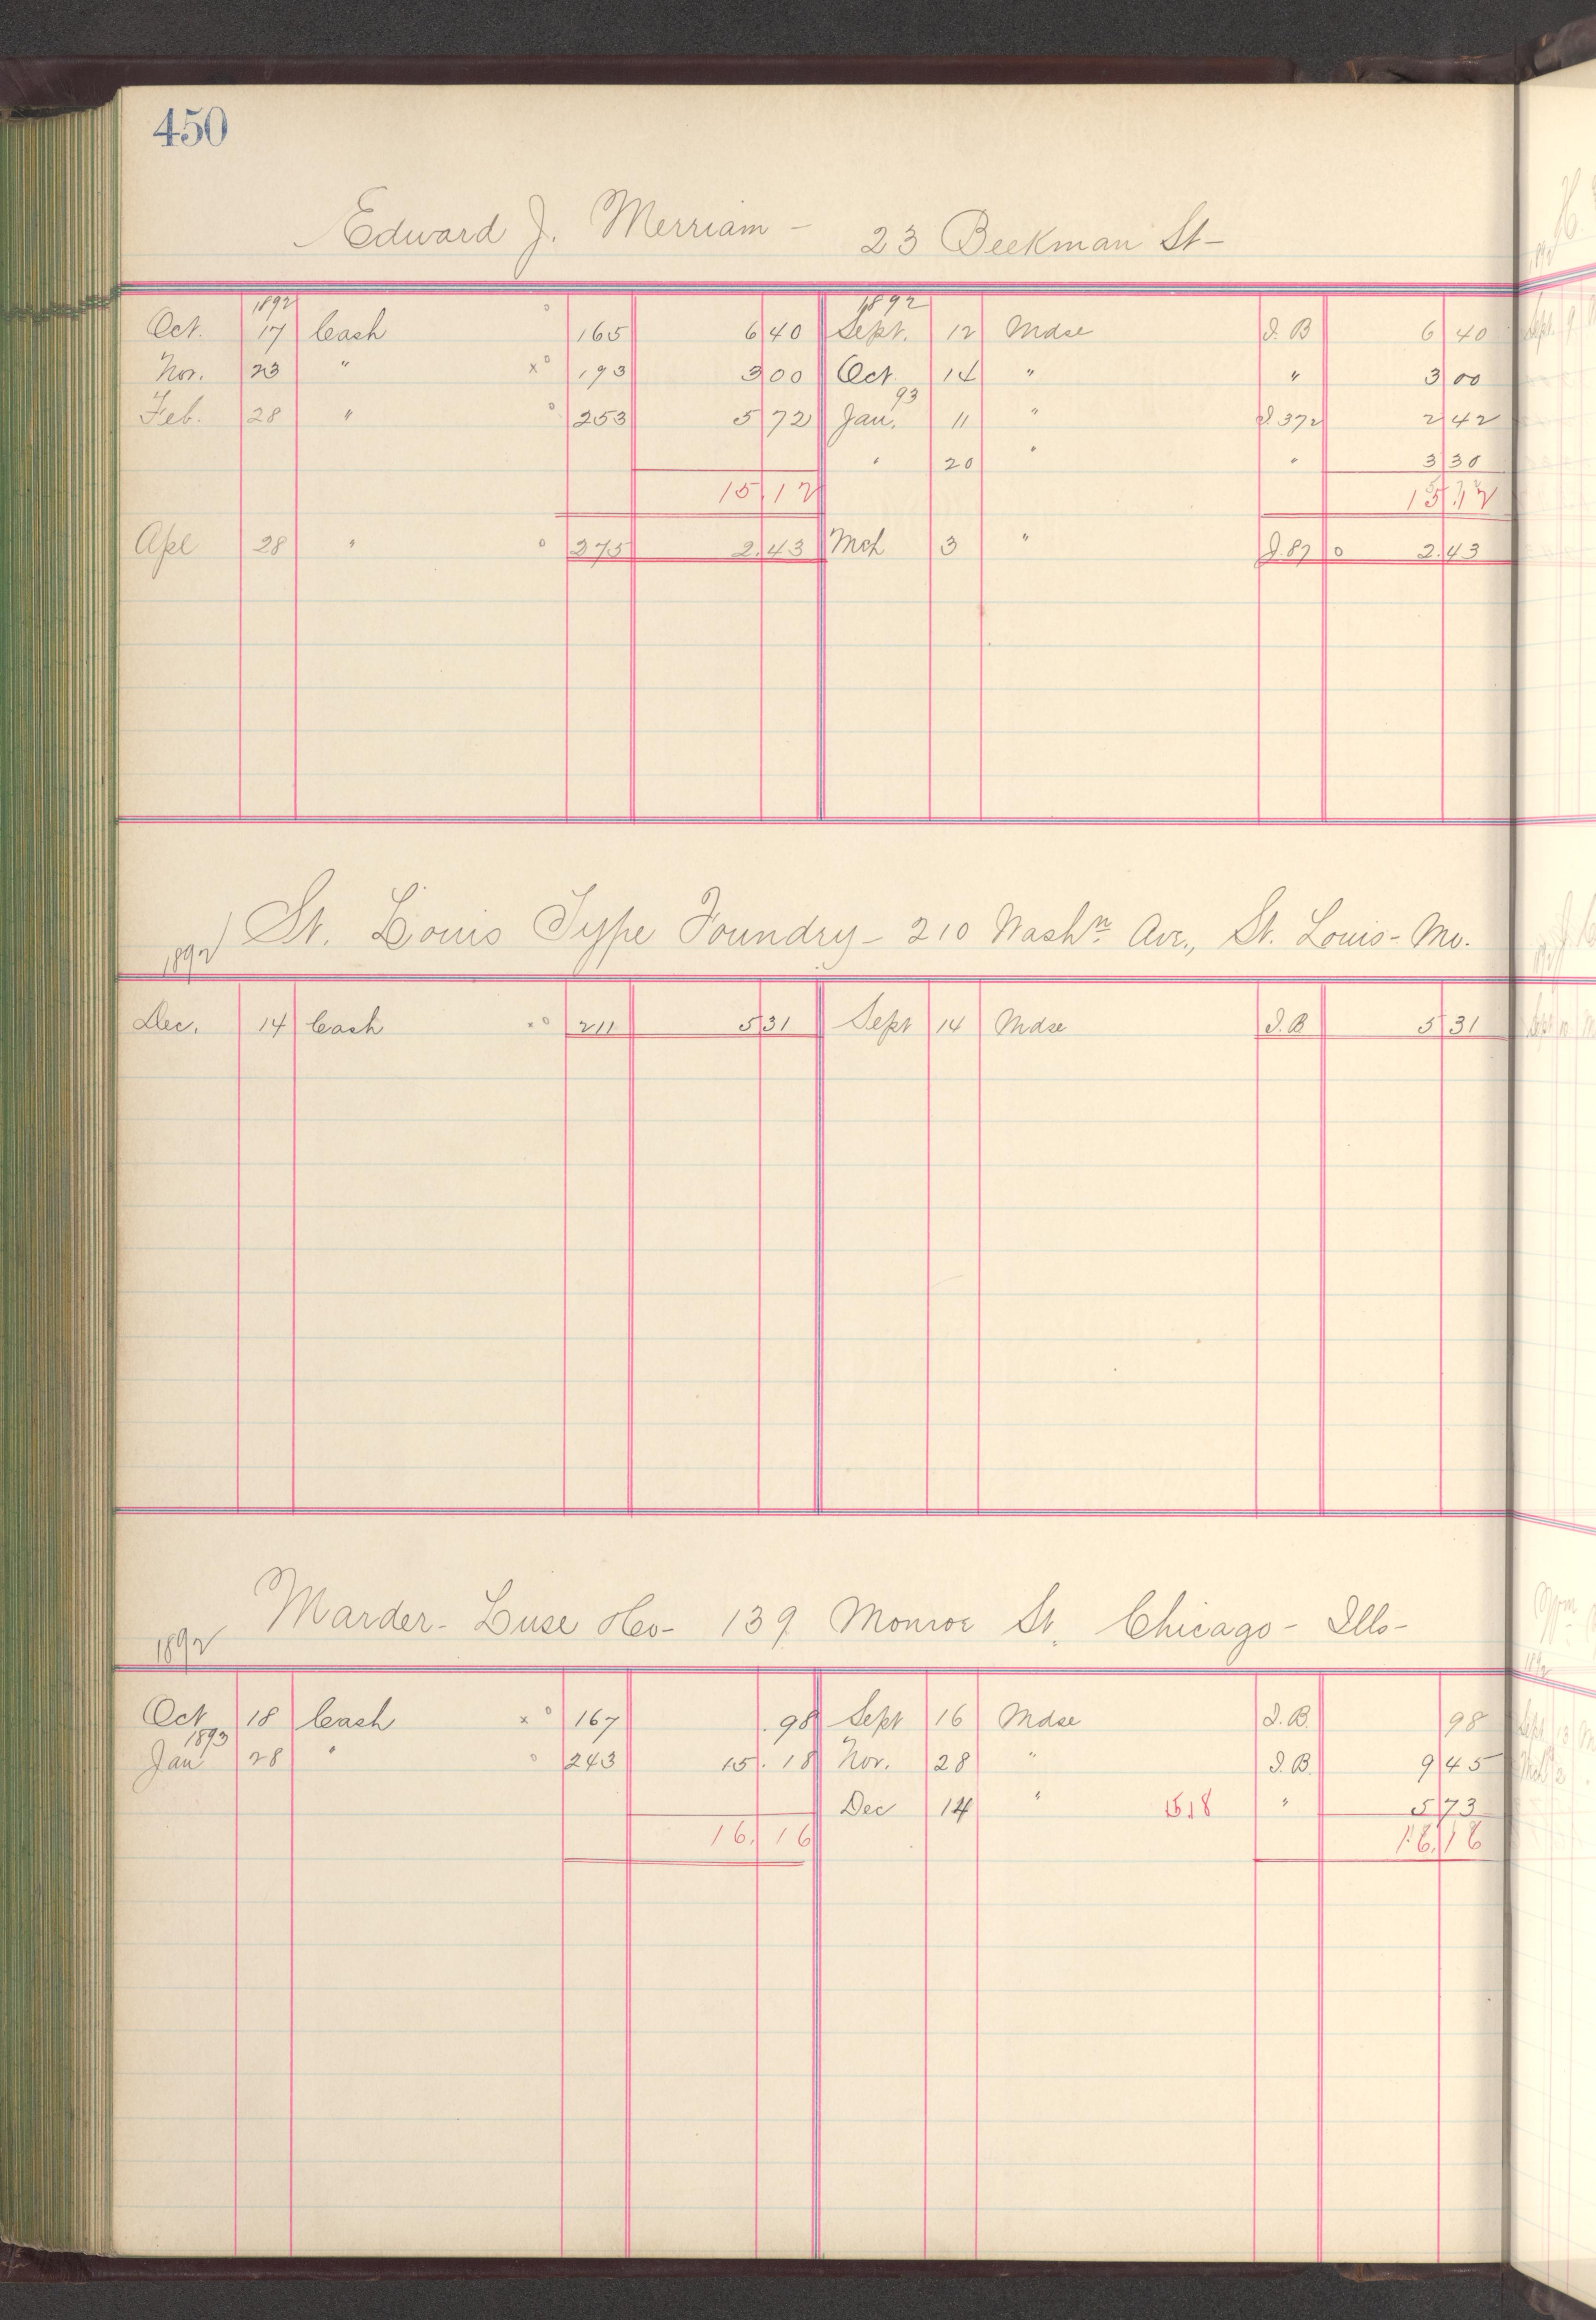 450
Edward J. Merriam - 23 Beekman St-
1892 1892
Oct. 17 Cash 165 6 40 Sept. 12 Mdse D.B 6 40
Nov. 23 " x° 193 3 00 Oct 14 " " 3 00
93
Feb. 28 " ° 253 5 72 Jan. 11 " D.372 2 42
" 20 " " 3 30
15 12 15.12
Apl 28 " ° 275 2.43 Mch 3 " D.87 0 2.43
St. Louis Type Foundry - 210 Washn Ave., St. Louis - Mo.
1892
Dec. 14 Cash x° 211 5 31 Sept 14 Mdse D.B 5 31
Marder - Luse & Co - 139 Monroe St. Chicago - Ills -
1892
Oct 18 Cash x ° 167 .98 Sept 16 Mdse D.B. 98
1893
Jan 28 " ° 243 15.18 Nov. 28 " D.B. 9 45
Dec 14 " 1518 " 5 73
16.16 16.16